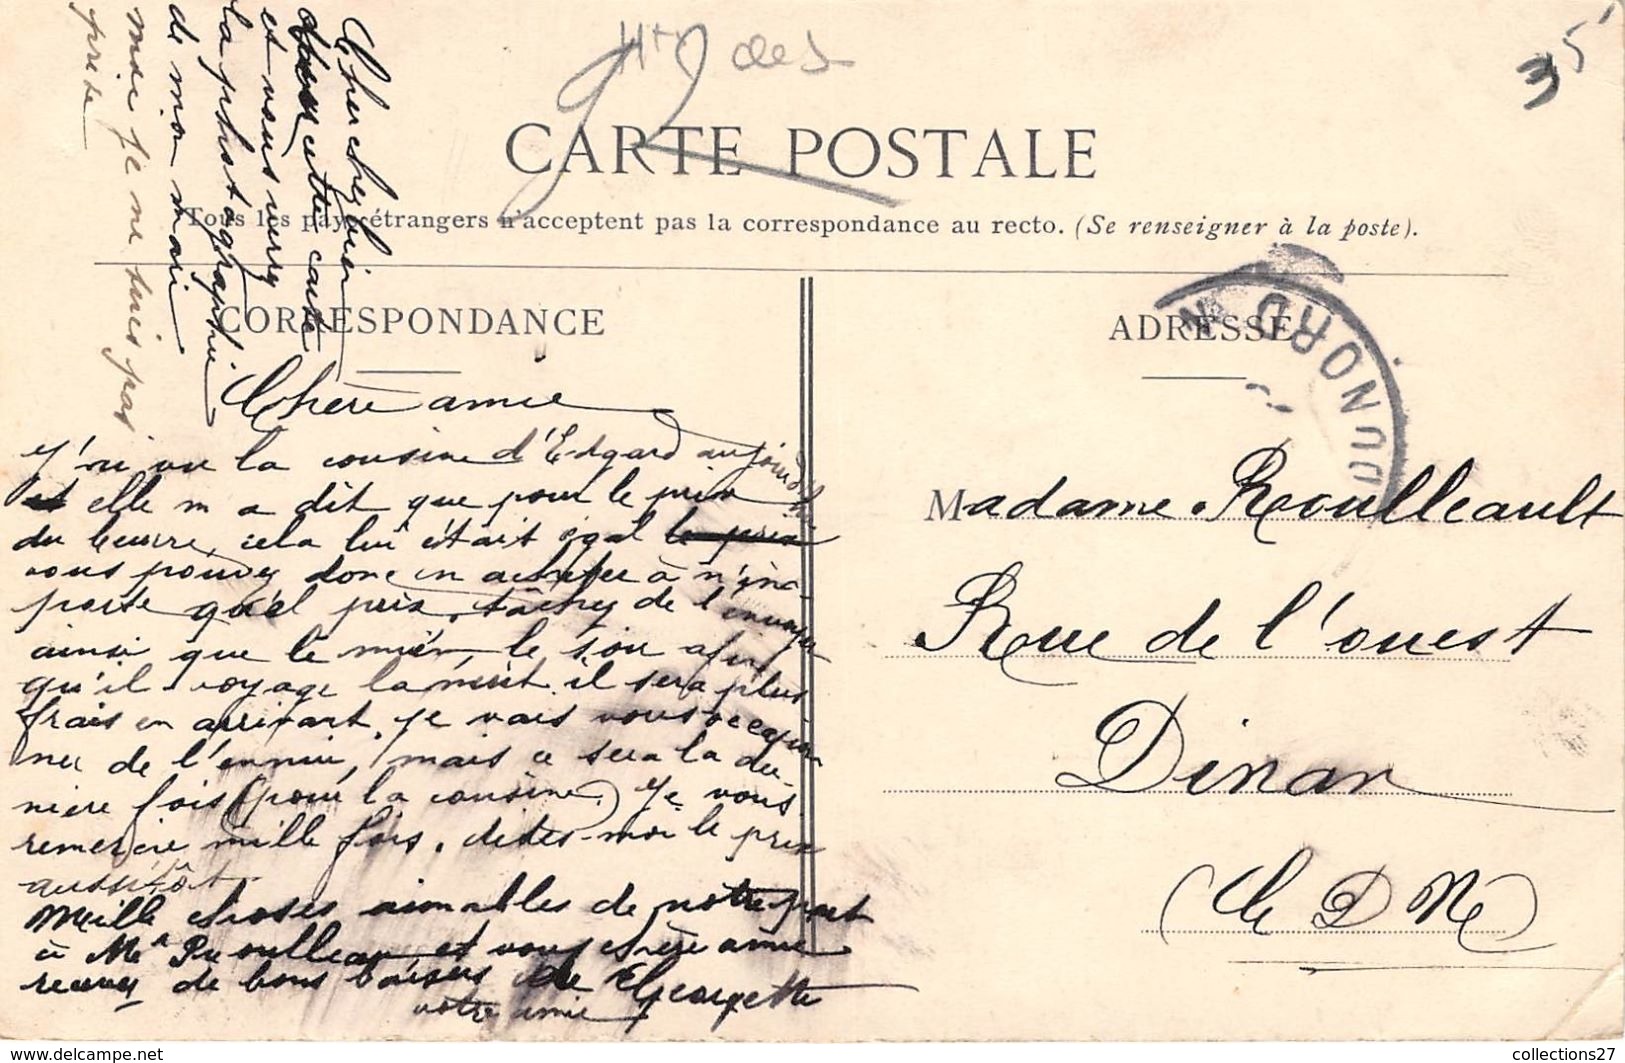 35
Htes des
CARTE POSTALE
Tous les pays étrangers n'acceptent pas la correspondance au recto. (Se renseigner à la poste).
CORRESPONDANCE
ADRESSE
D NORD
Cherchez bien
cette carte
et vous verrez
la photographie
de mon mari
moi je ne suis pas
prise
Chère amie
J'ai vu la cousine d'Edgard aujourd'hui
et elle m a dit que pour le prix
du beurre, cela lui était égal le prix
vous pouvez donc en acheter à n'im-
porte quel prix, tâchez de l'envoyer
ainsi que le mien, le soir afin
qu'il voyage la nuit il sera plus
frais en arrivant. Je vais vous occasion
ner de l'ennui, mais ce sera la der-
nière fois (pour la cousine) Je vous
remercie mille fois. dites-moi le prix
aussitôt
Mille choses aimables de notre part
à Mr Roulleau, et vous chère amie
recevez de bons baisers de Georgette
votre amie
Madame Roulleault
Rue de l'ouest
Dinan
(C D N)
collections27